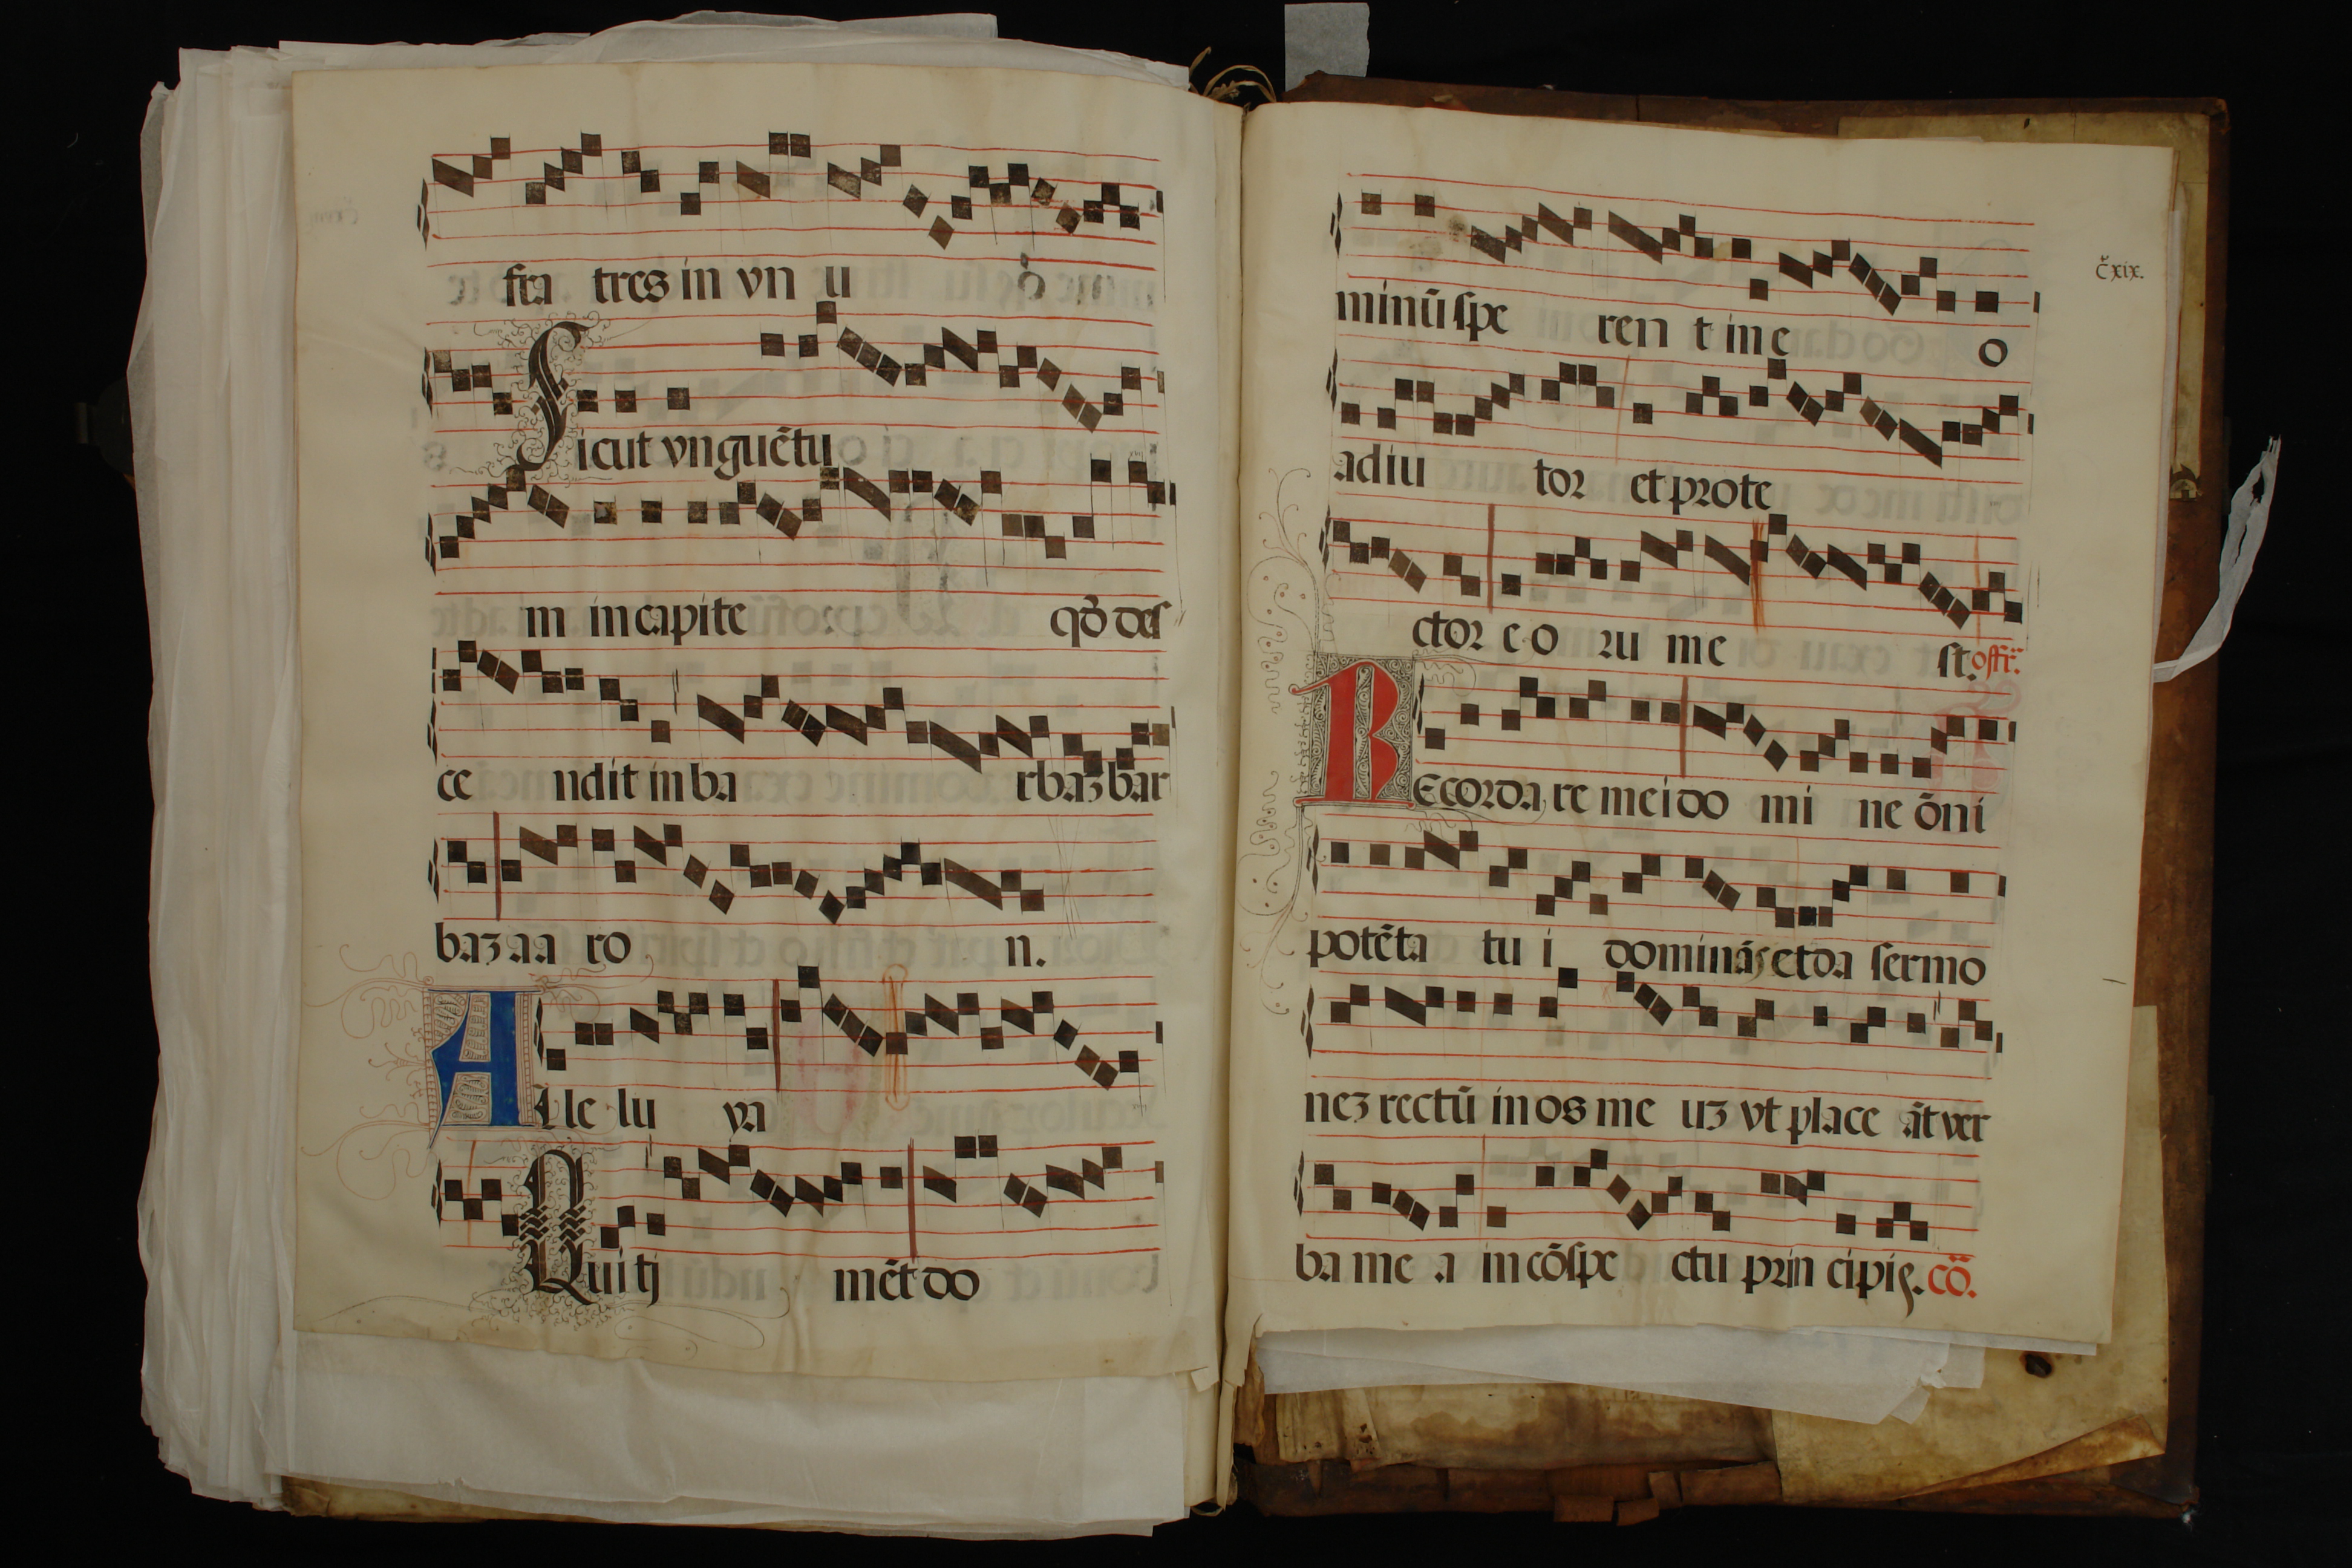 fra tres in vn u
Sicut vnguẽtu
m in capite qđ des
ce ndit in ba rbaʒ bar
baʒ aa ro n.
Alle lu ya
Qui tĩ mẽt do
c̃xix.
minũ spe ren t in e o
adiu tor et prote
ctor e o ru m e st. offr̃.
Recorda re mei do mi ne õni
potẽta tu i dominãs et da sermo
neʒ rectũ in os me uʒ vt place ãt ver
ba me a in cõspe ctu prin cipis. cõ.